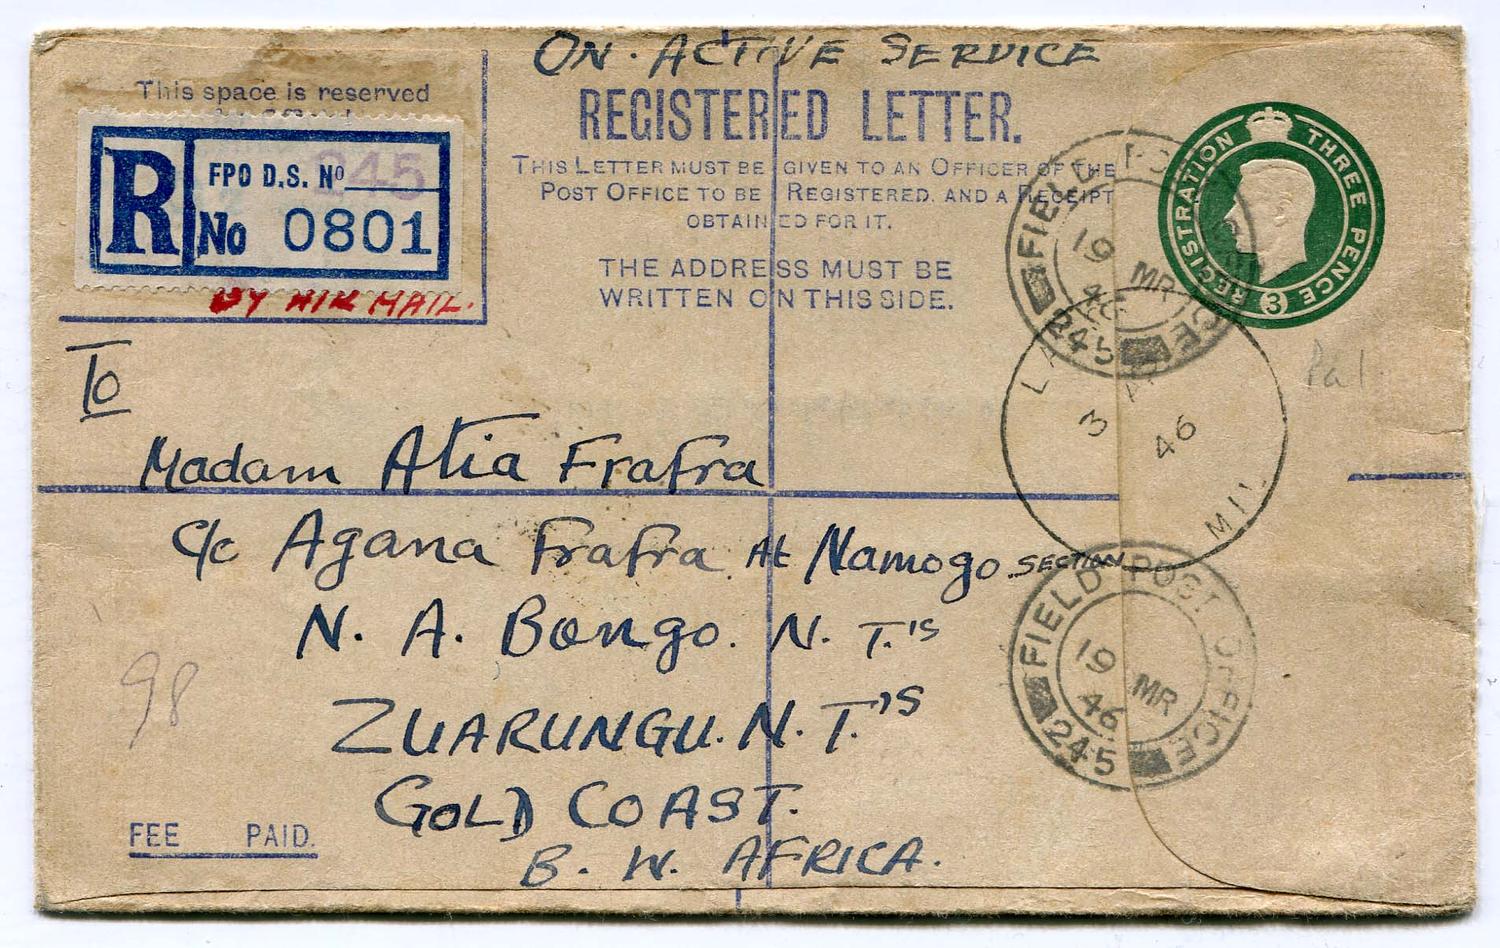 ON. ACTIVE SERVICE
This space is reserved
REGISTERED LETTER.
THIS LETTER MUST BE GIVEN TO AN OFFICER OF THE
POST OFFICE TO BE REGISTERED, AND A RECEIPT
OBTAINED FOR IT.
THE ADDRESS MUST BE
WRITTEN ON THIS SIDE.
R
FPO D.S. No 245
No 0801
BY AIR MAIL.
REGISTRATION THREE PENCE
3
FIELD POST OFFICE
19 MR
46
245
3 AP
46
MIL
Pal
To
Madam Atia Frafra
c/o Agana Frafra. At Namogo. SECTION
N. A. Bongo. N. T.'S
ZUARUNGU. N. T.'S
GOLD COAST.
B. W. AFRICA.
98
FIELD POST OFFICE
19 MR
46
245
FEE PAID.